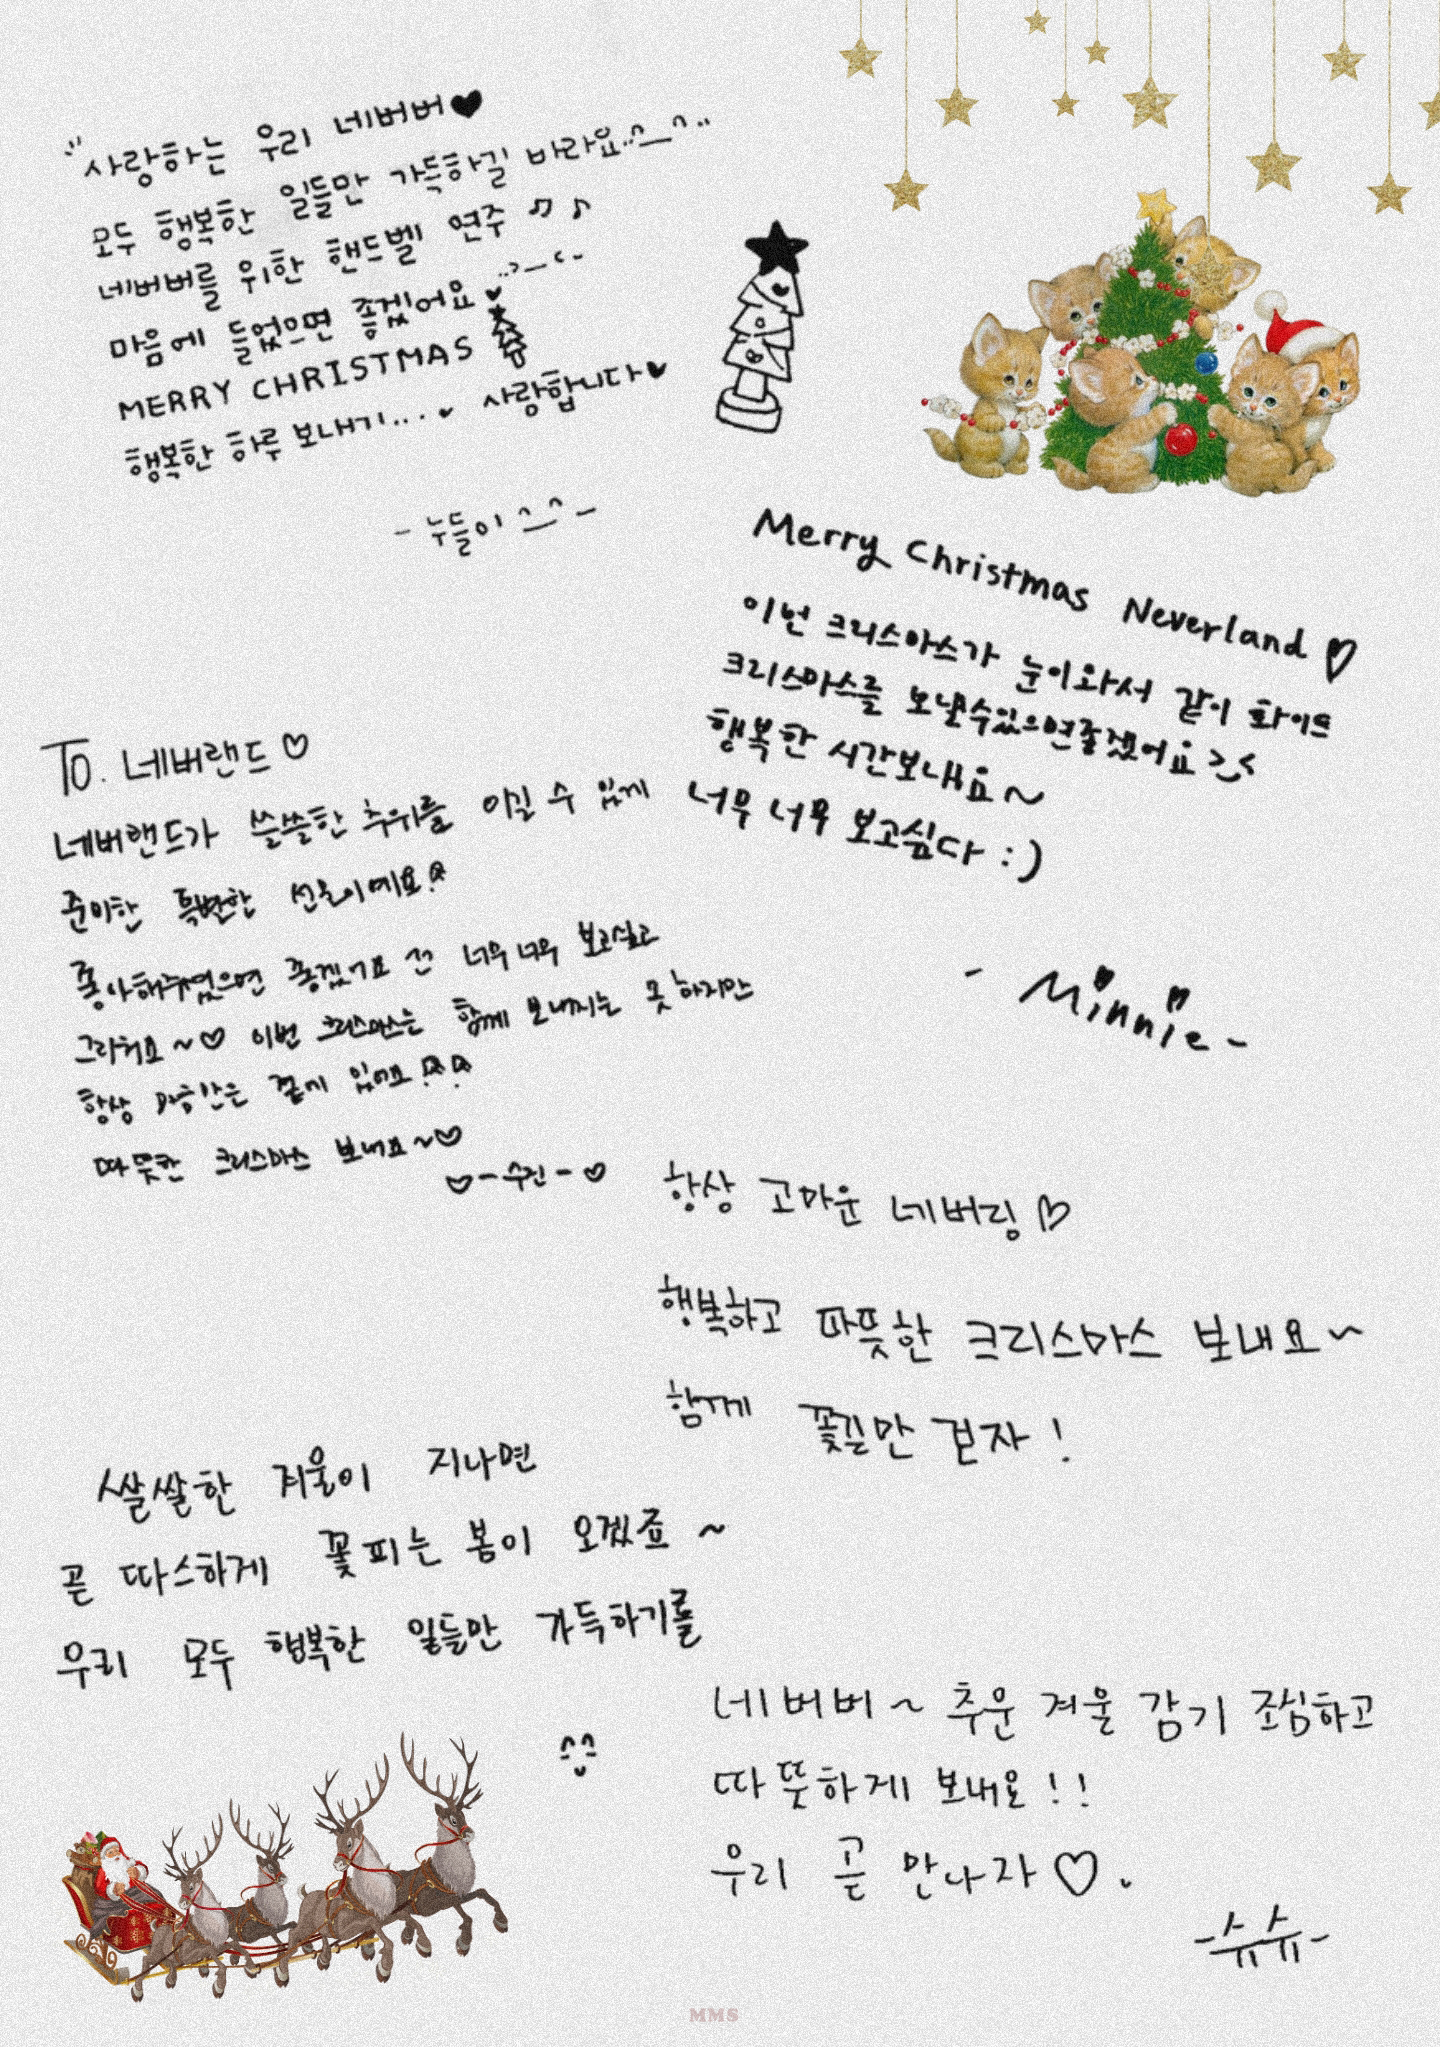 사랑하는 우리 네버버♥
모두 행복한 일들만 가득하길 바라요..^_^..
네버버를 위한 핸드벨 연주 ♫ ♪
마음에 들었으면 좋겠어요♥..>_<..
MERRY CHRISTMAS
행복한 하루 보내기...♥ 사랑합니다♥
- 누들이 ^_^ -
Merry Christmas Neverland ♡
이번 크리스마스가 눈이와서 같이 화이트
크리스마스를 보낼수있으면좋겠어요 >_<
행복한 시간보내요~
너무 너무 보고싶다 :)
- Minnie -
To. 네버랜드 ♡
네버랜드가 쓸쓸한 추위를 이길 수 있게
준비한 특별한 선물이에요
좋아해주셨으면 좋겠어요 너무 너무 보고싶고
그리워요~♡ 이번 크리스마스는 함께 보내지는 못하지만
항상 마음만은 곁에 있어요
따뜻한 크리스마스 보내요~♡
♡-수진-♡
항상 고마운 네버링 ♡
행복하고 따뜻한 크리스마스 보내요~
함께 꽃길만 걷자!
쌀쌀한 겨울이 지나면
곧 따스하게 꽃피는 봄이 오겠죠 ~
우리 모두 행복한 일들만 가득하기를
네버버~ 추운 겨울 감기 조심하고
따뜻하게 보내요!!
우리 곧 만나자♡.
-슈슈-
MMS